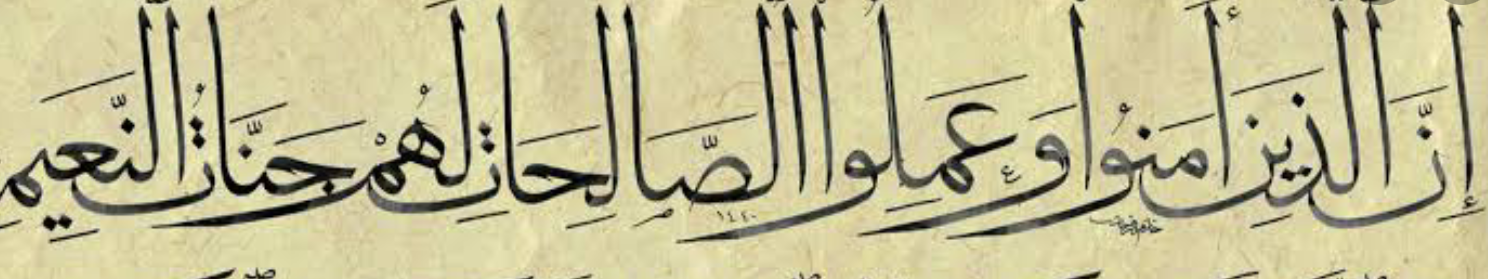 إِنَّ الَّذِينَ آمَنُوا وَعَمِلُوا الصَّالِحَاتِ لَهُمْ جَنَّاتُ النَّعِيمِ
١٤٤٠